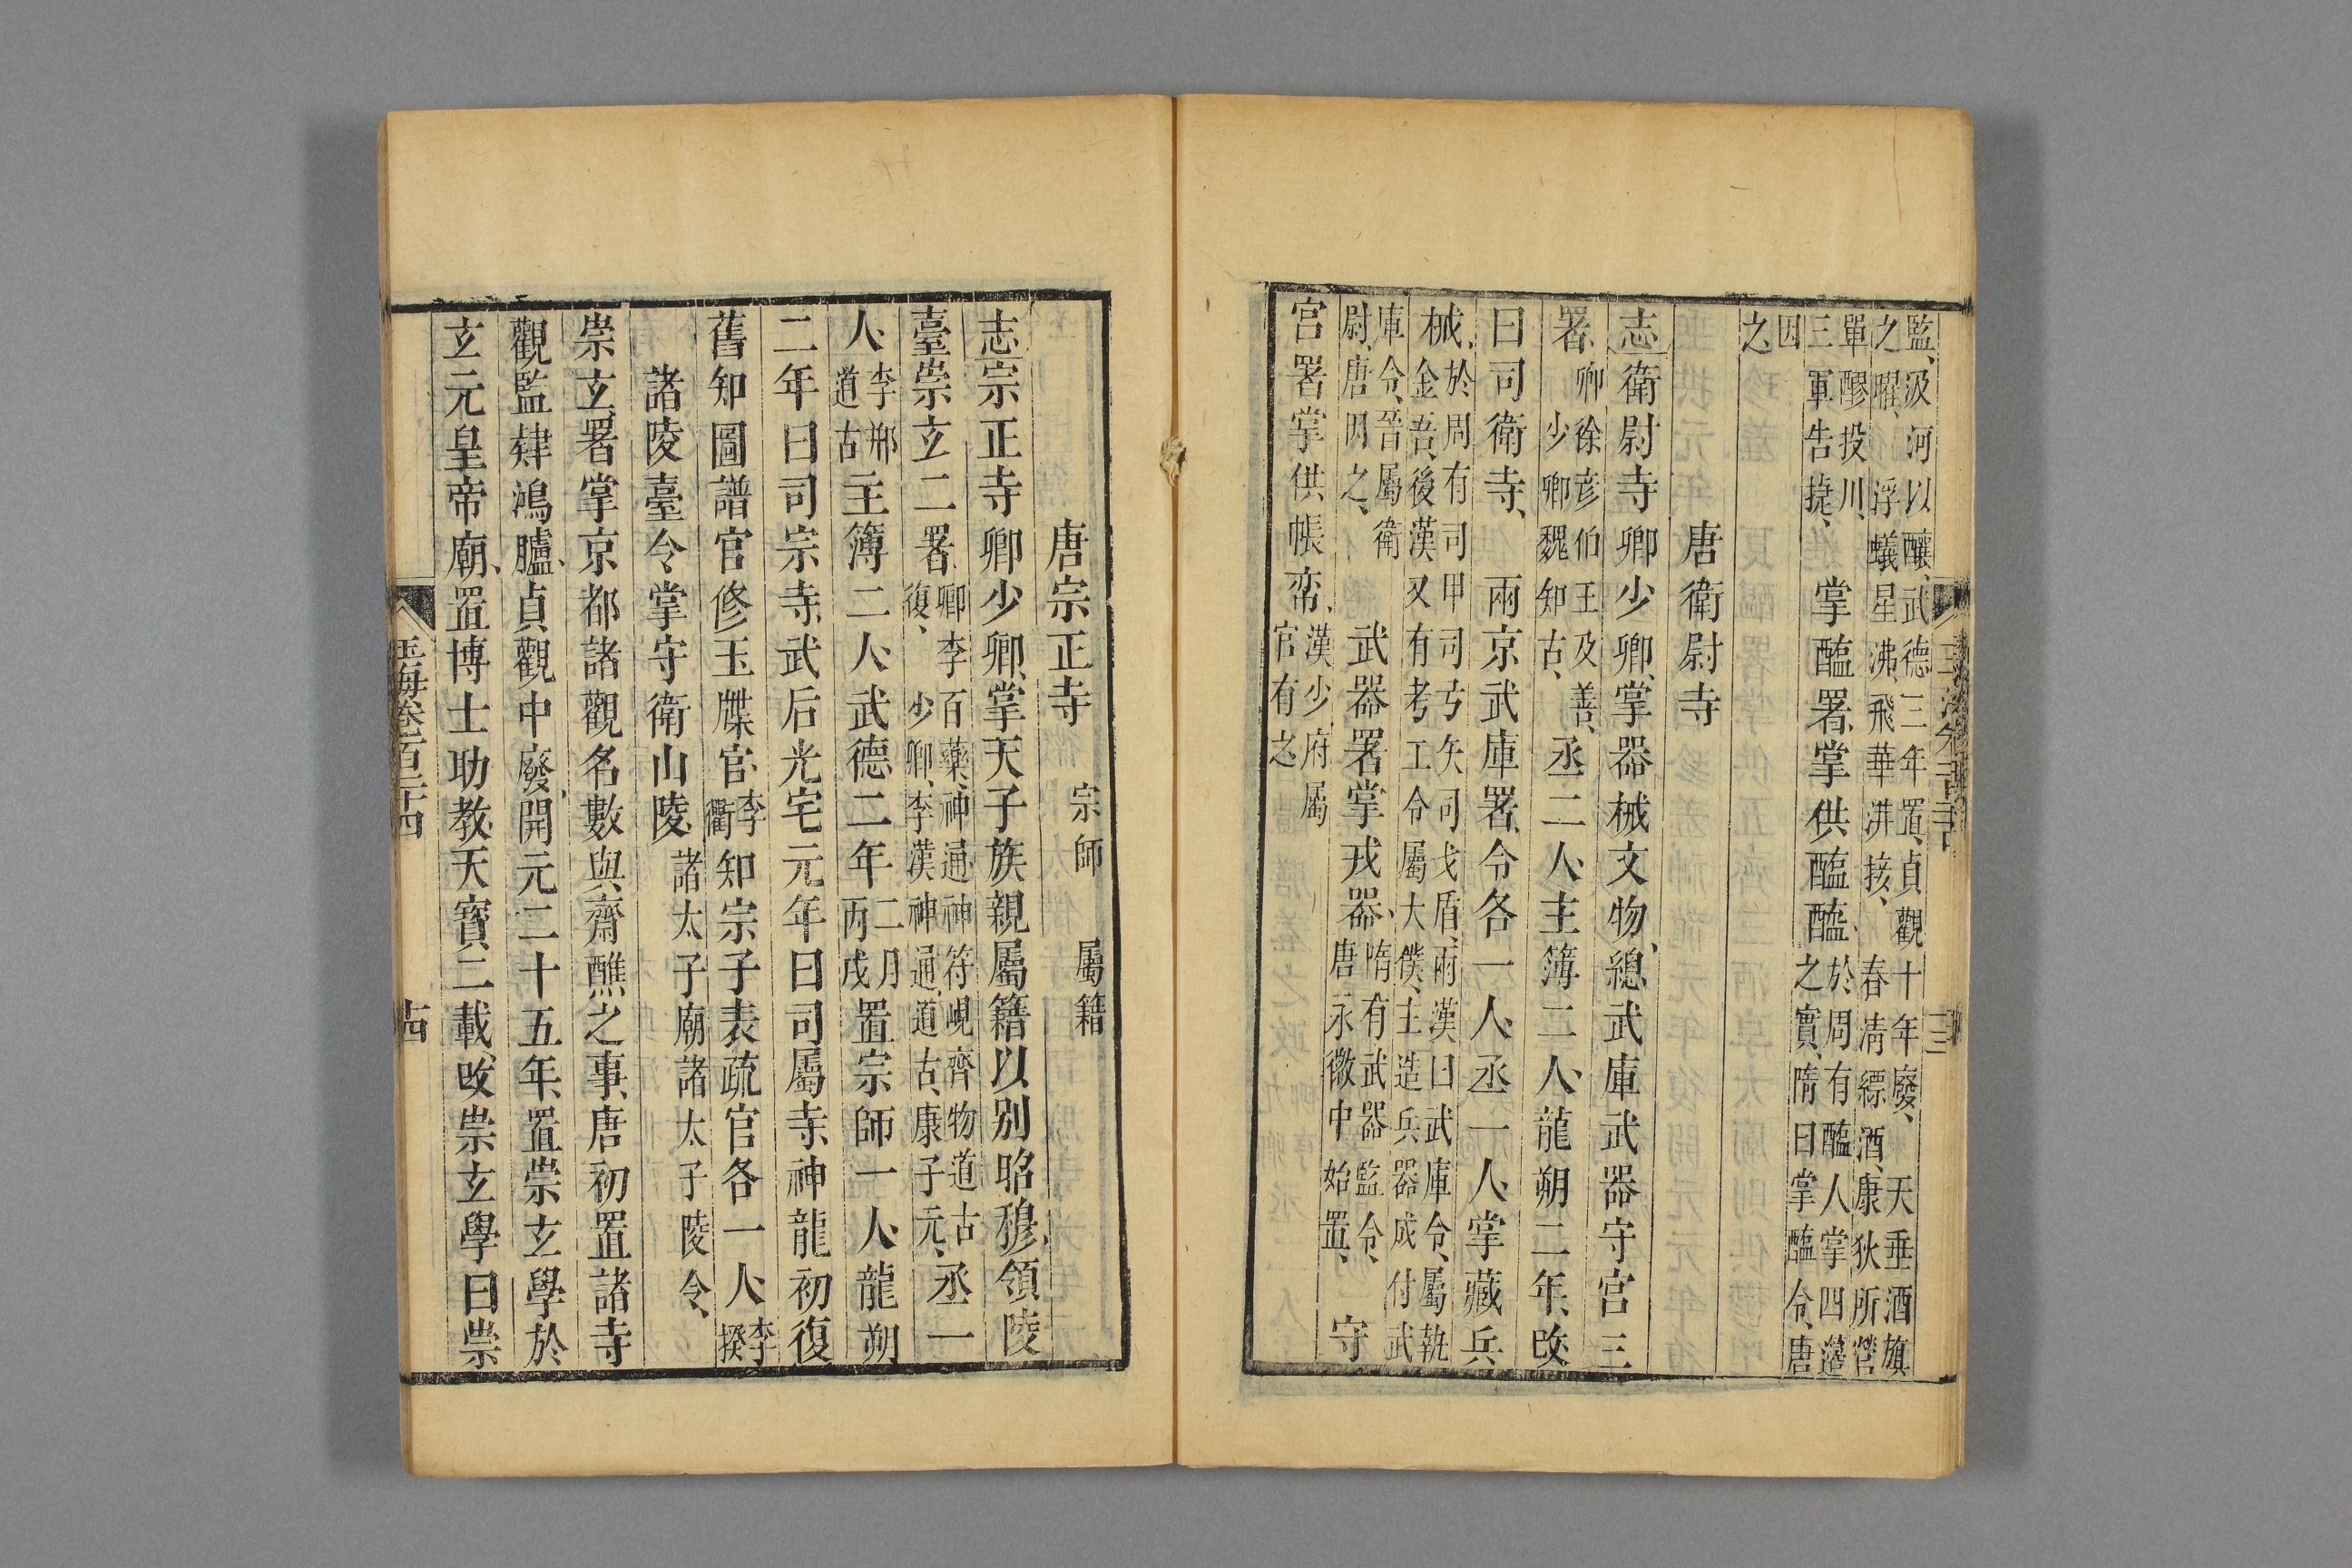 監、汲河以釀、武德三年置、貞觀十年廢、　天垂酒旗
之曜、浮蟻星沸、飛華湃接、　春清縹酒、康狄所營
單醪投川、
三軍告捷、
掌醢署、掌供醢醯、
於周有醢人掌四籩
之實、隋曰掌醢令、唐
因
之、
唐衛尉寺
志衛尉寺卿少卿、掌器械文物、總武庫武器守宮三
署、
卿徐彥伯王及善、
少卿魏知古、
丞二人、主簿二人、龍朔二年、改
曰司衛寺、　兩京武庫署、令各一人、丞一人、掌藏兵
械、
於周有司甲司弓矢司戈盾、兩漢曰武庫令、屬執
金吾、後漢又有考工令屬大僕、主造兵器成付武
庫令、晉屬衛
尉、唐因之、
武器署掌戎器、
隋有武器監令、
唐永徽中始置、
守
宮署掌供帳帟、
漢少府屬
官有之
唐宗正寺　宗師　屬籍
志宗正寺卿少卿、掌天子族親屬籍以別昭穆、領陵
臺崇玄二署、
卿李百藥、神通神符峴齊物道古
復、少卿、李漢神通、道古、康子元、
丞一
人、
李鄘
道古
主簿二人、武德二年
二月
丙戌
置宗師一人、龍朔
二年曰司宗寺、武后光宅元年曰司屬寺、神龍初復
舊知圖譜官修玉牒官、
李
衢
知宗子表疏官各一人、
李
揆
諸陵臺令掌守衛山陵、
諸太子廟諸太子陵令、
崇玄署掌京都諸觀名數與齋醮之事、唐初置諸寺
觀監肄鴻臚、貞觀中廢、開元二十五年、置崇玄學於
玄元皇帝廟、置博士助教、天寶二載、改崇玄學曰崇
玉海卷一百二十四
十四